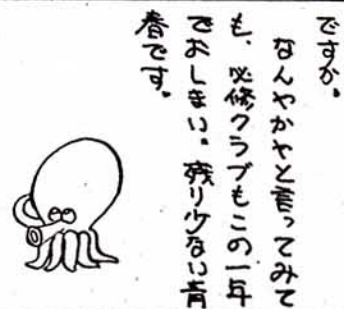 ですか。
なんやかやと言ってみて
も、必修クラブもこの一年
でおしまい。残り少ない青
春です。